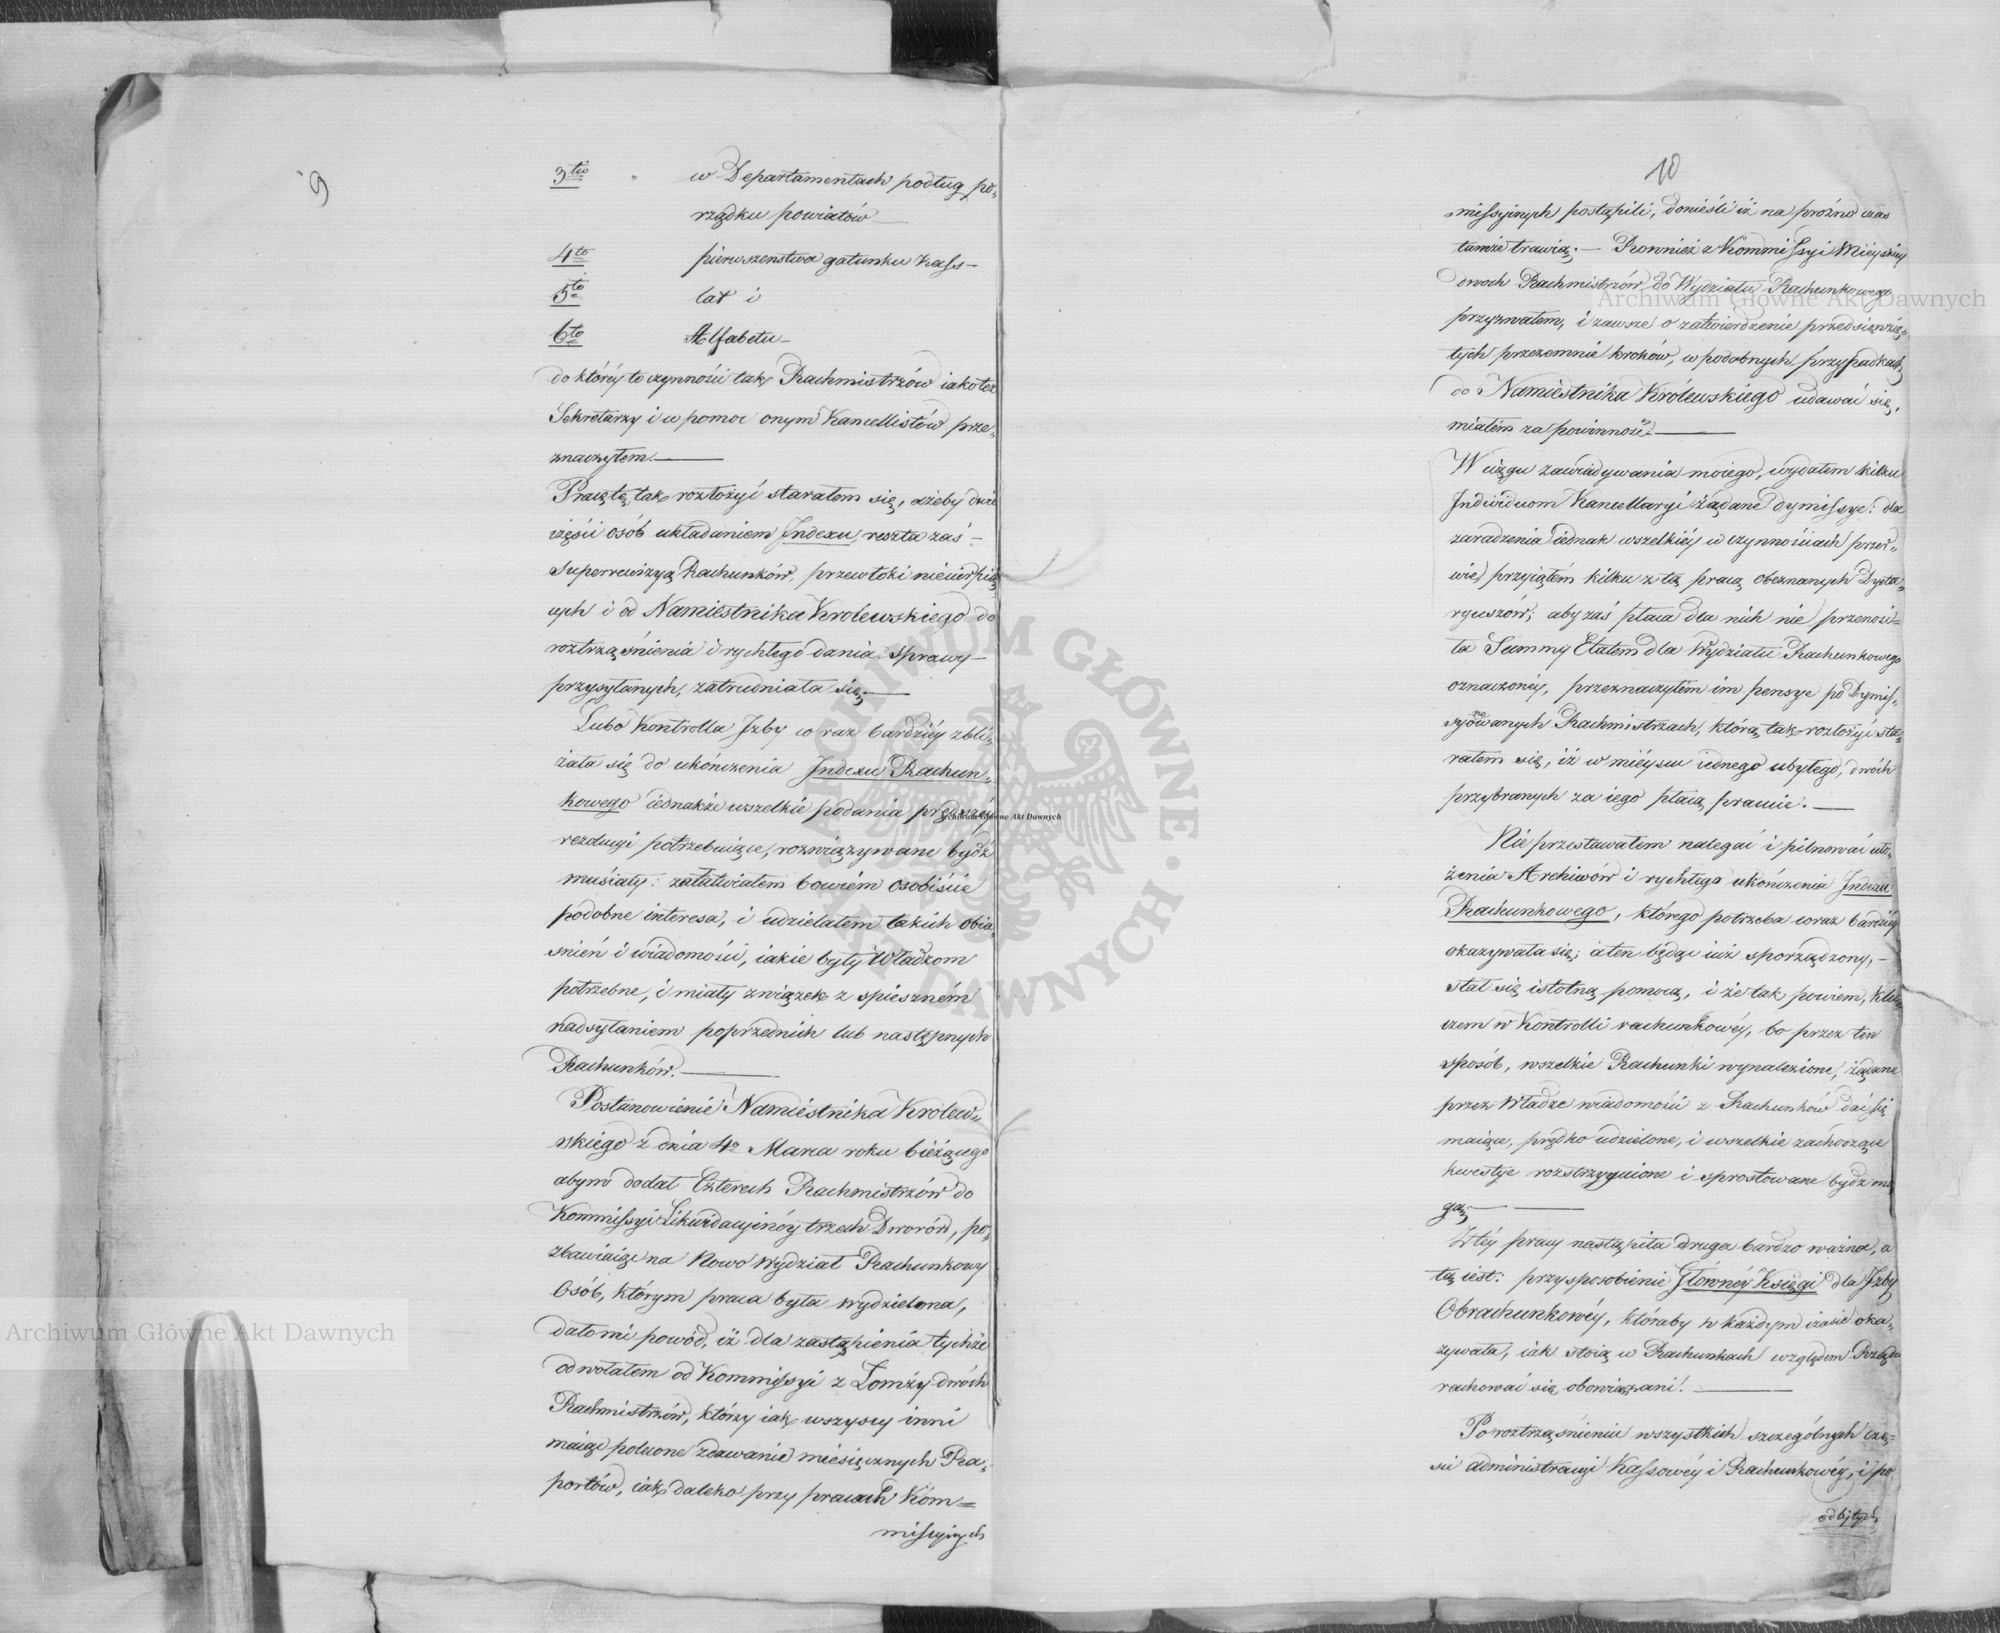 9
3tio " w Departamentach podług po-
rządku powiatów —
4to pierwszenstwa gatunku Kass —
5to lat i
6to Alfabetu —
do któréy to czynności tak Rachmistrzów iako też
Sekretarzy i w pomoc onym Kancellistów prze-
znaczyłem. —
Pracę tę tak rozłożyć starałem się, ażeby dwie
części osób układaniem Indexu, reszta zaś —
superrewizyą Rachunków, przewłoki niecierpią-
cych i od Namiestnika Krolewskiego do
roztrząśnienia i rychłego dania sprawy —
przysyłanych, zatrudniała się. —
Lubo Kontrolla Izby co raz bardziéy zbli-
żała się do ukończenia Indexu Rachun-
kowego iednakże wszelkie podania prędszey
rezolucyi potrzebuiące, rozwiązywane bydź
musiały: załatwiałem bowiém osobiście
podobne interesa, i udzielałem takich obia-
snień i wiadomości, iakie były Władzom
potrzebne, i miały związek z spieszném
nadsyłaniem poprzednich lub następnych
Rachunków. —
Postanowienie Namiestnika Krolew-
skiego z dnia 4o Marca roku bieżącego
abym dodał Czterech Rachmistrzów do
Kommissyi Likwidacyinéy trzech Dworów, po-
zbawiaiąc na Nowo Wydział Rachunkowy
Osób, którym praca była wydzielona,
dało mi powód, iż dla zastąpienia tychże
odwołałem od Kommissyi z Łomży dwóch
Rachmistrzów, którzy iak wszyscy inni
maiąc polecone zdawanie miesięcznych Ra-
portów, iak daleko przy pracach Kom-
missyinych
10
missyinych postąpili, donieśli iż na próżno czas
tamże trawią; — Rownież z Kommissyi Mieyskiey
dwoch Rachmistrzów do Wydziału Rachunkowego
przyzwałem, i zawsze o zatwierdzenie przedsięwzię-
tych przezemnie kroków, w podobnych przypadkach,
do Namiestnika Królewskiego udawać się,
miałém za powinność. —
W ciągu zawiadywania moiego, wydałem kilku
Individuom Kancellaryi żądane dymissye: dla
zaradzenia iednak wszelkiéy w czynnościach przer-
wie, przyiąłém kilku z tą pracą obeznanych Dyeta-
ryuszów; aby zaś płaca dla nich nie przenosi-
ła Summy Etatem dla Wydziału Rachunkowego
oznaczonéy, przeznaczyłem im pensye po Dymis-
syonowanych Rachmistrzach, którą tak rozłożyć sta-
rałem się, iż w mieyscu iednego ubyłego, dwóch
przybranych za iego płacą pracuie. —
Nie przestawałem nalegać i pilnować uło-
żenia Archiwów i rychłego ukończenia Indexu
Rachunkowego, którego potrzeba coraz bardziéy
okazywała się; a ten będąc iuż sporządzony, —
stał się istotną pomocą, i że tak powiem, Klu-
czem w Kontrolli rachunkowéy, bo przez ten
sposób, wszelkie Rachunki wynalezione, żądane
przez Władze wiadomości z Rachunków dać się
maiące, prędko udzielone, i wszelkie zachodzące
kwestye rozstrzygnione i sprostowane bydź mo-
gą; —
Z téy pracy nastąpiła druga bardzo ważna, a
tą iest: przysposobienie Główney Księgi dla Izby
Obrachunkowéy, któraby w każdym czasie oka-
zywała, iak stoią w Rachunkach względem Rządu
rachować się obowiązani! —
Po roztrząśnieniu wszystkich szczególnych czę-
ści administracyi Kassowéy i Rachunkowéy, i po
odbytych
Archiwum Główne Akt Dawnych
Archiwum Główne Akt Dawnych
Archiwum Główne Akt Dawnych
ARCHIWUM GŁÓWNE AKT DAWNYCH